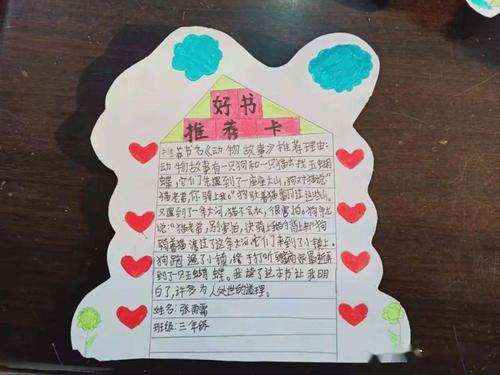 好书
推荐卡
推荐书名《动物故事》推荐理由:
动物故事有一只狗和一只猫去找玉蝴
蝶,它们先遇到了一座座大山,狗对猫说"
猫老弟,你骑上我。"狗驮着猫翻过这些山。
又遇到了一条大河,猫不会水,很害怕。狗
说:"猫老弟,别害怕,快骑上。"狗
骑着猫渡过了这条大河它们来到了小镇上。
狗跑遍了小镇,终于打听
到了一只玉蝴蝶。我读了这本书让我明
白了,许多为人处世的道理。
姓名:张雨
班级:三年级